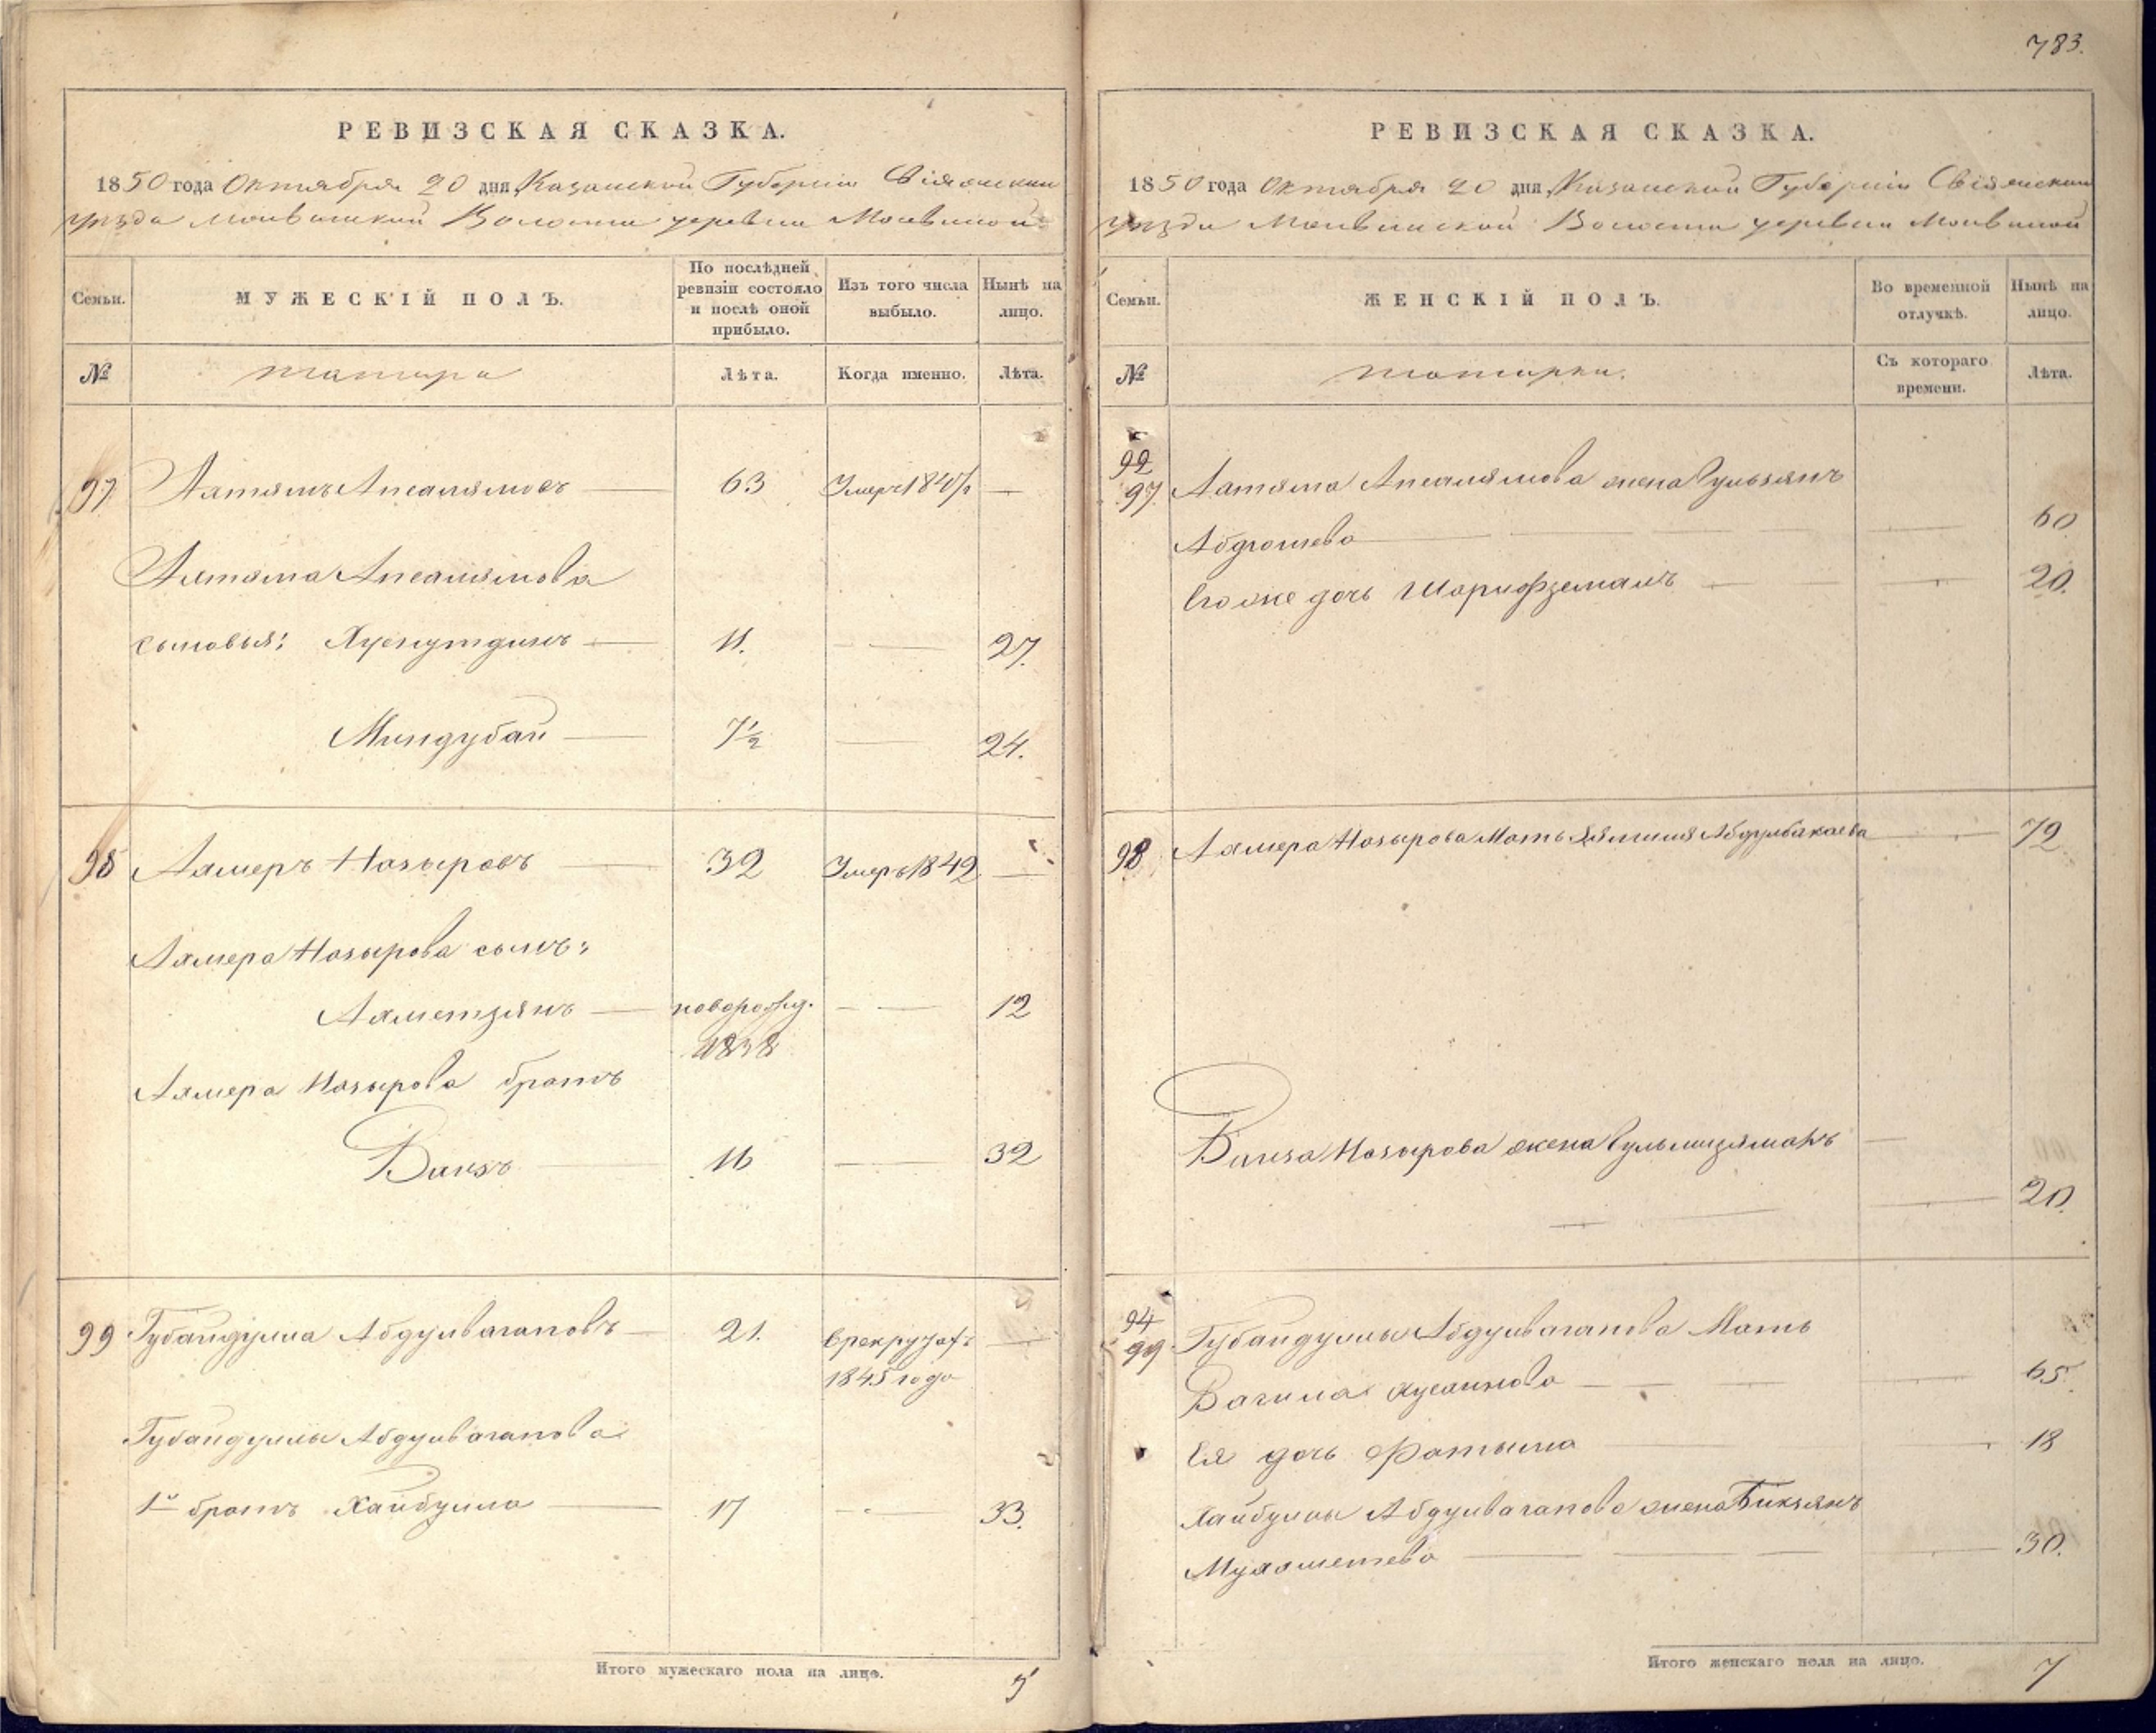 783.
РЕВИЗСКАЯ СКАЗКА.
1850 года Октября 20 дня Казанской Губерніи Свіяжскаго
уѣзда Молвинской Волости деревни Молвиной
Семьи.
МУЖЕСКІЙ ПОЛЪ.
По послѣдней
ревизіи состояло
и послѣ оной
прибыло.
Изъ того числа
выбыло.
Нынѣ на
лицо.
№
татара
Лѣта.
Когда именно.
Лѣта.
97
Апсалямовъ
63
Умеръ
Апсалямова
сыновья: Хуснутдинъ
11.
27.
Миндубай
7½
24.
98
Ахмеръ Назыровъ
32
Умеръ 1842
Ахмера Назырова сынъ:
Ахметзянъ
новорожд.
12
1838
Ахмера Назырова братъ
Ваизъ
16
32
99
Губайдулла Абдулвагаповъ
21.
в рекруты
1845 года
Губайдуллы Абдулвагапова
1й братъ Хайбулла
17
33.
Итого мужескаго пола на лицо.
5
РЕВИЗСКАЯ СКАЗКА.
1850 года Октября 20 дня Казанской Губерніи Свіяжскаго
уѣзда Молвинской Волости деревни Молвиной
Семьи.
ЖЕНСКІЙ ПОЛЪ.
Во временной
отлучкѣ.
Нынѣ на
лицо.
№
татарки.
Съ котораго
времени.
Лѣта.
92
97.
Апсалямова жена Гульзянъ
60
Абдюшева
Его же дочь Шарифземалъ
20.
98
Ахмера Назырова Мать Абдулбакаева
72
Ваиза Назырова жена Гульмизяманъ
20.
94
99
Губайдуллы Абдулвагапова Мать
Вагила Хусаинова
65.
Ея дочь Фатыма
18
Хайбуллы Абдулвагапова жена Бикзянъ
Мухаметева
30.
Итого женскаго пола на лицо.
7